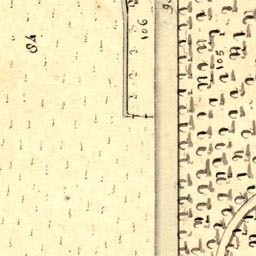 84
106
105